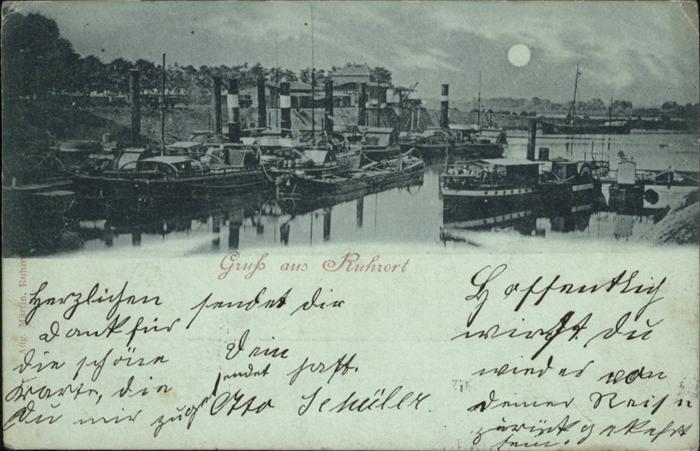 Gruß aus Ruhrort
Aug. Martin, Ruhrort
Herzlichen
Dank für
die schöne
Karte, die
Du mir zuge
sendet hast.
sendet dir
Dein
Otto Schüller.
Hoffentlich
wirst du
wieder von
deiner Reise
zurückgekehrt
sein.